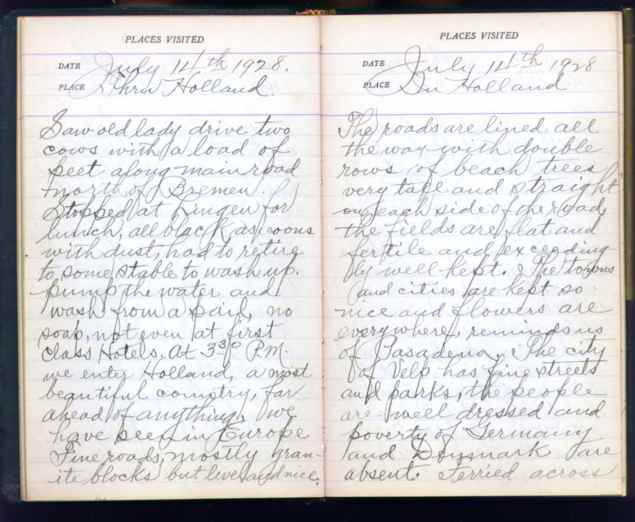 PLACES VISITED
DATE July 14th 1928.
PLACE Thru Holland.
Saw old lady drive two
cows with a load of
peet along main road
north of Bremen.
Stopped at Lingen for
lunch, all black as coons
with dust, had to retire
to some stable to wash up.
pump the water and
wash from a pail, no
soap, not even at first
class Hotels. At 3:30 P.M.
we enter Holland, a most
beautiful country, far
ahead of anything we
have seen in Europe
Fine roads, mostly gran-
ite blocks but level and nice.
PLACES VISITED
DATE July 14th 1928
PLACE In Holland
The roads are lined all
the way with double
rows of beach trees
very tall and straight
on each side of the road,
the fields are flat and
fertile and exceeding
ly well kept. The towns
and cities are kept so
nice and flowers are
everywhere, reminds us
of Pasadena. The city
of Velp has fine streets
and parks, the people
are well dressed and
poverty of Germany
and Denmark are
absent. Ferried across